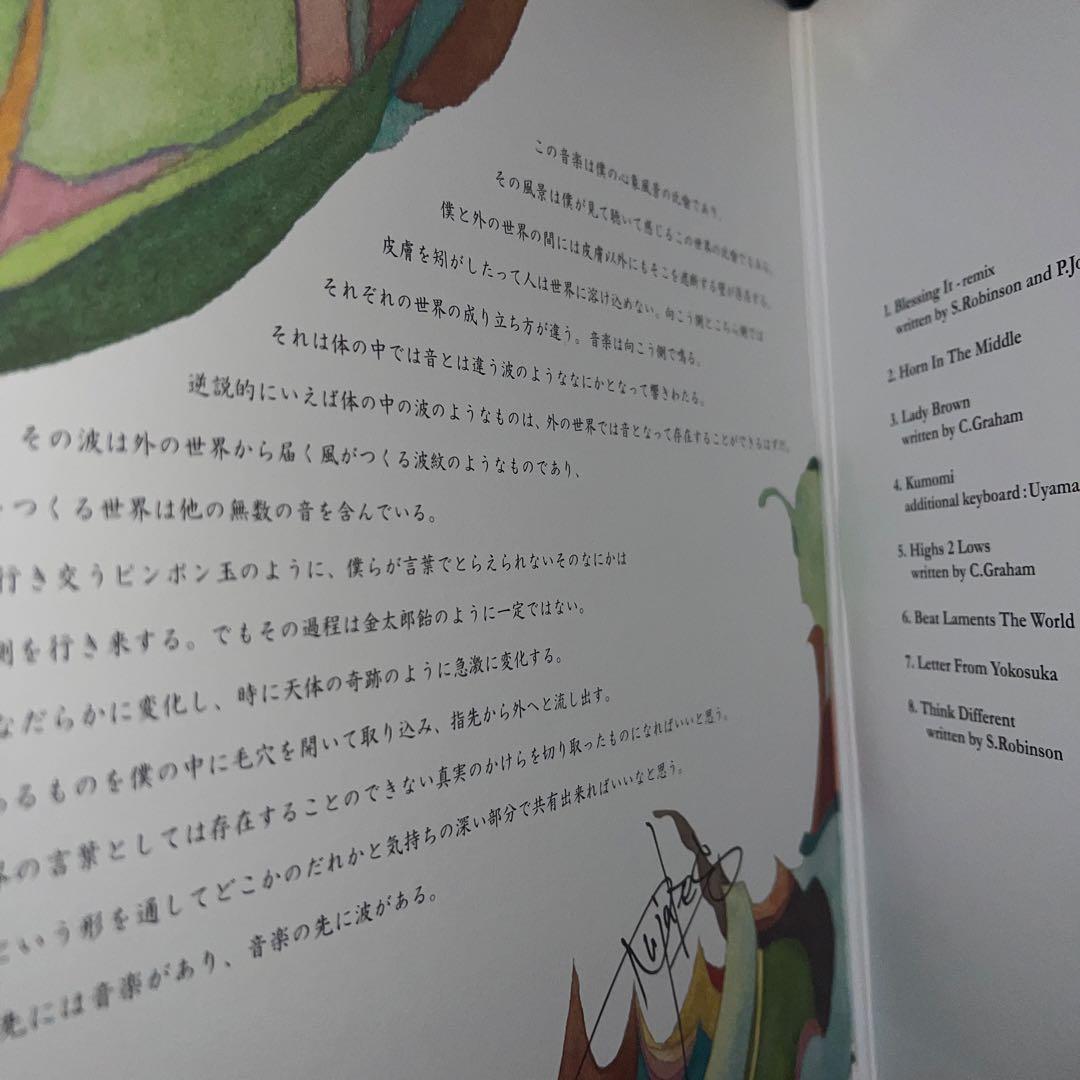 この音楽は僕の心象風景の比喩であり、
その風景は僕が見て聴いて感じるこの世界の比喩でもある。
僕と外の世界の間には皮膚以外にもそこを遮断する壁が存在する。
皮膚を剥がしたって人は世界に溶け込めない。向こう側とこちら側では
それぞれの世界の成り立ち方が違う。音楽は向こう側で鳴る。
それは体の中では音とは違う波のようななにかとなって響きわたる。
逆説的にいえば体の中の波のようなものは、外の世界では音となって存在することができるはずだ。
その波は外の世界から届く風がつくる波紋のようなものであり、
つくる世界は他の無数の音を含んでいる。
行き交うピンポン玉のように、僕らが言葉でとらえられないそのなにかは
側を行き来する。でもその過程は金太郎飴のように一定ではない。
なだらかに変化し、時に天体の奇跡のように急激に変化する。
あるものを僕の中に毛穴を開いて取り込み、指先から外へと流し出す。
の言葉としては存在することのできない真実のかけらを切り取ったものになればいいと思う。
という形を通してどこかのだれかと気持ちの深い部分で共有出来ればいいなと思う。
先には音楽があり、音楽の先に波がある。
Nujabes
1. Blessing It - remix
written by S.Robinson and P.Jo
2. Horn In The Middle
3. Lady Brown
written by C.Graham
4. Kumomi
additional keyboard : Uyama
5. Highs 2 Lows
written by C.Graham
6. Beat Laments The World
7. Letter From Yokosuka
8. Think Different
written by S.Robinson